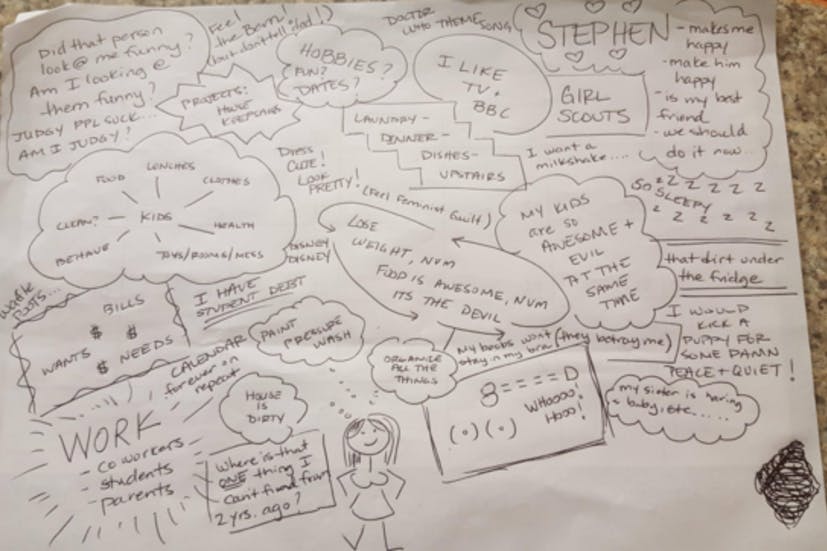 Did that person
look@ me funny?
Am I looking @
them funny?
JUDGY PPL SUCK...
AM I JUDGY?
Feel
the Burn!
(but don't tell dad!)
PROJECTS:
HOUSE
KEEPSAKES
HOBBIES?
FUN?
DATES?
DOCTOR
WHO THEME SONG
I LIKE
TV +
BBC
STEPHEN
- makes me
happy
- make him
happy
- is my best
friend
- we should
do it now...
GIRL
SCOUTS
LAUNDRY-
DINNER-
DISHES-
UPSTAIRS
I want a
milkshake....
SO SLEEPY
z z z z z z
z z z z z
FOOD
LUNCHES
CLOTHES
CLEAN?
KIDS
HEALTH
BEHAVE
TOYS/ROOMS/MESS
DRESS
CUTE!
LOOK
PRETTY!
(Feel Feminist Guilt)
DISNEY
DISNEY
LOSE
WEIGHT, NUM
FOOD IS AWESOME, NUM
ITS THE DEVIL
MY KIDS
are so
AWESOME +
EVIL
AT THE
SAME
TIME
that dirt under
the fridge
I WOULD
KICK A
PUPPY FOR
SOME DAMN
PEACE + QUIET!
BILLS
$ $
WANTS
$ NEEDS
I HAVE
STUDENT DEBT
CALENDAR
forever on
repeat
PAINT
PRESSURE
WASH
ORGANIZE
ALL THE
THINGS
My boobs wont
stay in my bra
(they betray me)
8====D
WHOOOO!
HOOO!
(o)(o)
my sister is having
a baby, etc.....
HOUSE
IS
DIRTY
WORK
- coworkers
students
- parents
Where is that
ONE thing I
can't find from
2 yrs. ago?